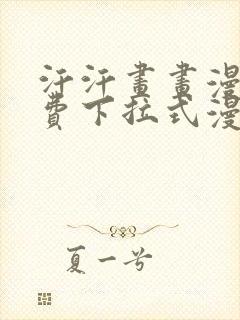 汗汗畫畫漫
費下拉式漫
夏一兮